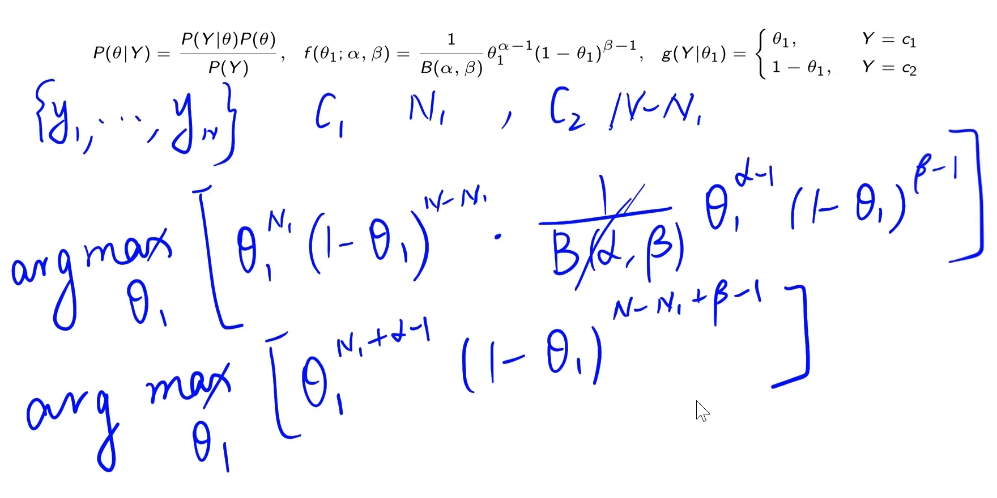 P(θ|Y) = P(Y|θ)P(θ) / P(Y), f(θ₁; α, β) = 1 / B(α, β) θ₁^{α−1}(1 − θ₁)^{β−1}, g(Y|θ₁) = { θ₁, Y = c₁
1 − θ₁, Y = c₂
{y₁, ..., y_N} C₁ N₁ , C₂ N−N₁
arg max_{θ₁} [ θ₁^{N₁} (1−θ₁)^{N−N₁} · 1 / B(α, β) θ₁^{α−1} (1−θ₁)^{β−1} ]
arg max_{θ₁} [ θ₁^{N₁+α−1} (1−θ₁)^{N−N₁+β−1} ]